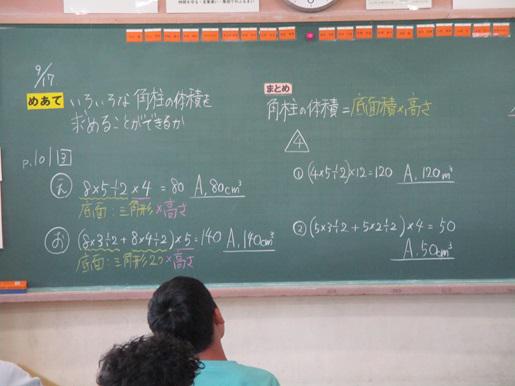 9/17
めあて いろいろな角柱の体積を
求めることができるか
p.101 ③
え 8×5÷2×4=80 A.80cm³
底面:三角形×高さ
お (8×3÷2+8×4÷2)×5=140 A.140cm³
底面:三角形2つ×高さ
まとめ
角柱の体積=底面積×高さ
4
① (4×5÷2)×12=120 A.120cm³
② (5×3÷2+5×2÷2)×4=50
A.50cm³